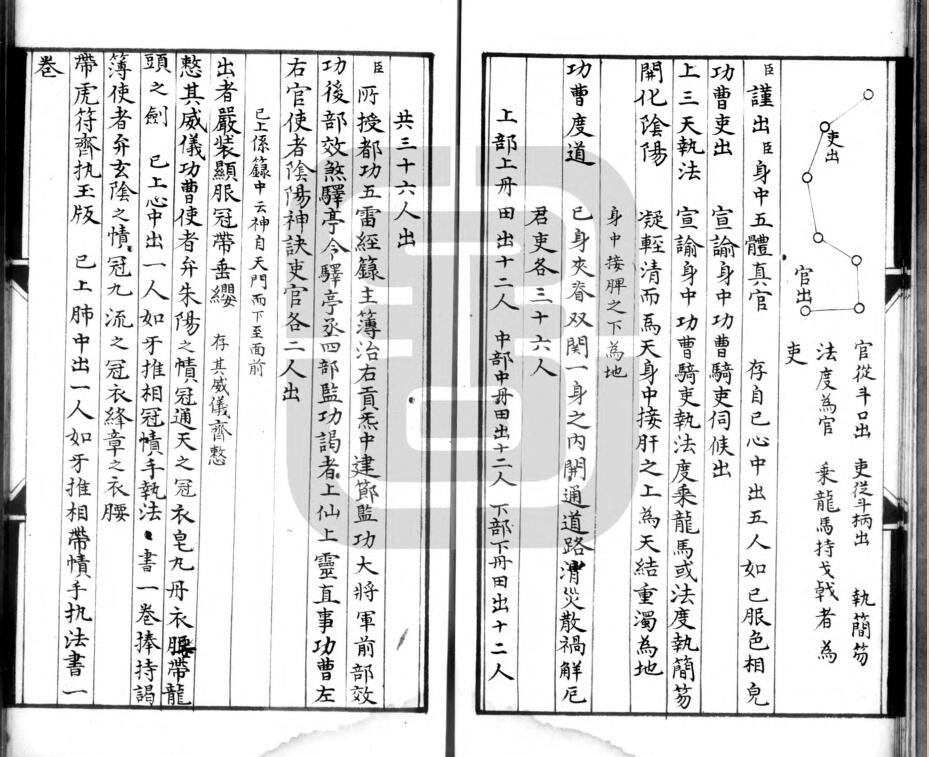 吏出
官出
官從斗口出　吏從斗柄出　執簡笏
法度為官　乘龍馬持戈戟者為
吏
臣謹出臣身中五體真官　存自己心中出五人如已服色相皃
功曹吏出　宣諭身中功曹騎吏伺候出
上三天執法　宣諭身中功曹騎吏執法度乘龍馬或法度執簡笏
開化陰陽　凝輕清而為天身中接肝之上為天結重濁為地
身中接脾之下為地
功曹度道　已身夾脊双関一身之內開通道路消災散禍解厄
君吏各三十六人
上部上丹田出十二人　中部中丹田出十二人　下部下丹田出十二人
共三十六人出
臣所授都功五雷經籙主簿治右貢炁中建節監功大將軍前部效
功後部效煞驛亭令驛亭丞四部監功謁者上仙上靈直事功曹左
右官使者陰陽神訣吏官各二人出
已上係籙中云神自天門而下至面前
出者嚴裝顯服冠帶垂纓　存其威儀齊整
整其威儀功曹使者弁朱陽之幘冠通天之冠衣皂九丹衣腰帶龍
頭之劍　已上心中出一人如牙推相冠幘手執法書一卷捧持謁
簿使者弁玄陰之幘冠九流之冠衣絳章之衣腰
帶虎符齊执玉版　已上肺中出一人如牙推相帶幘手执法書一
卷